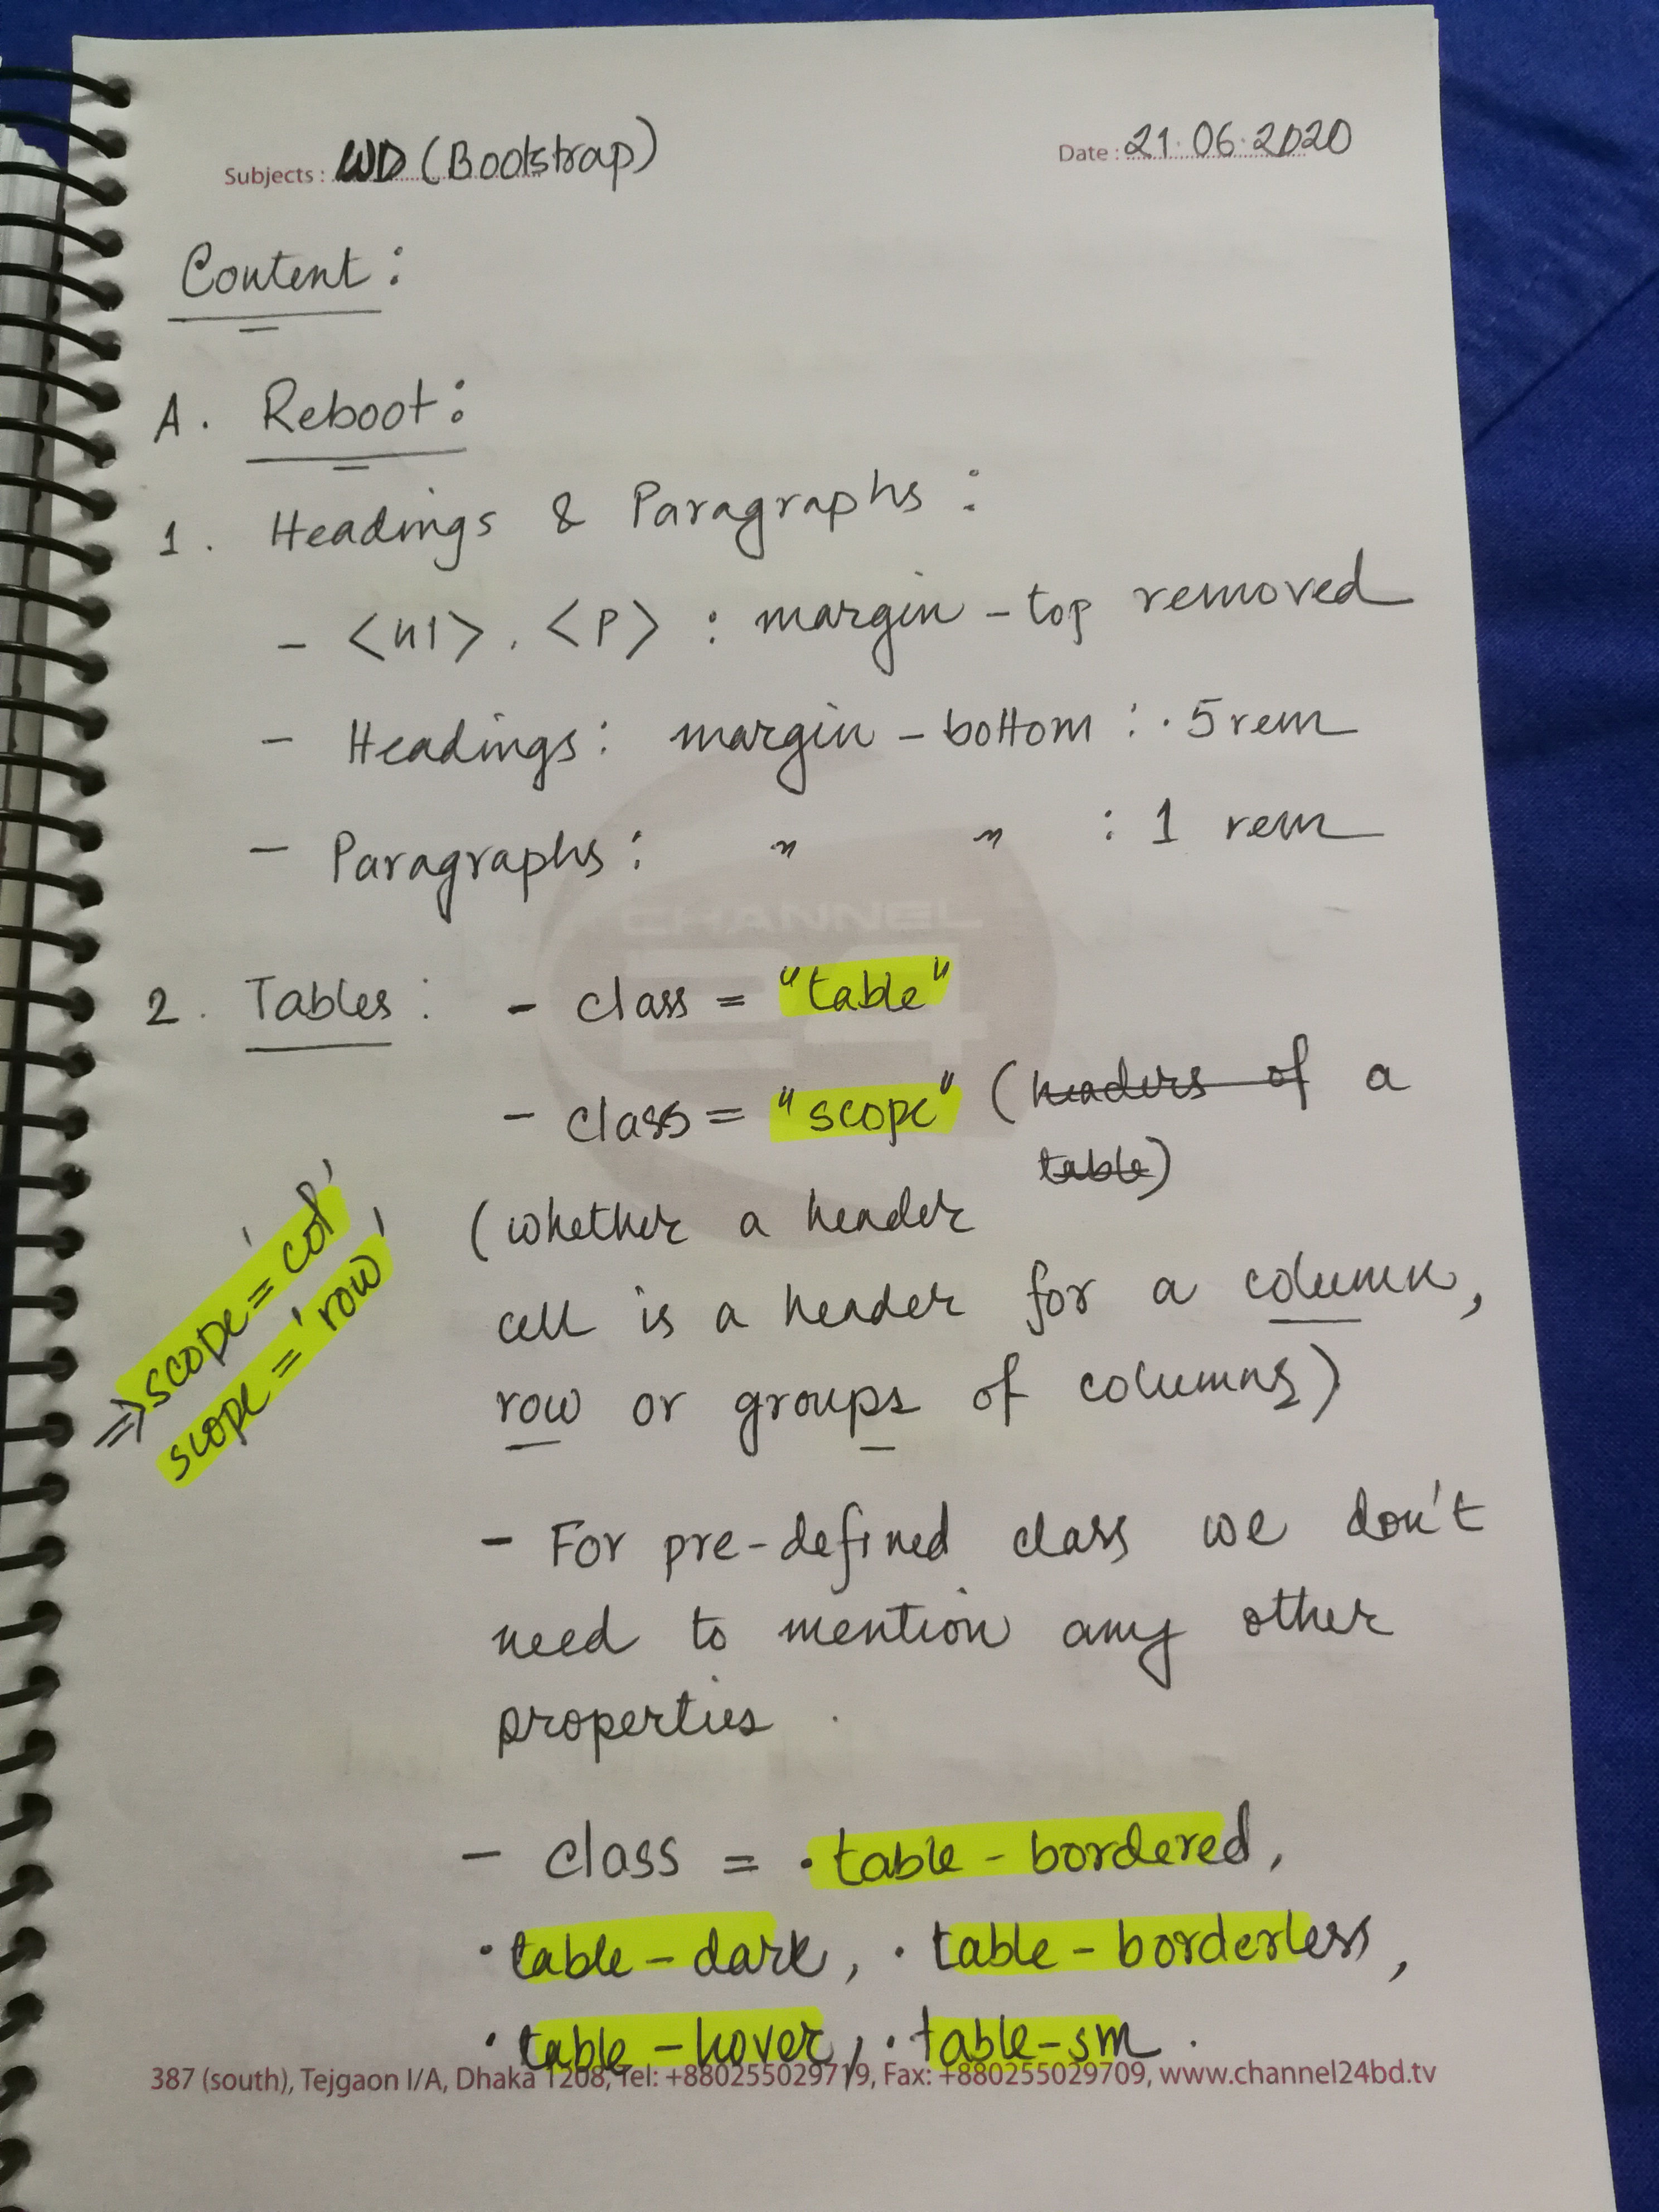 Subjects : WD (Bootstrap)
Date : 21.06.2020
Content :
A. Reboot :
1. Headings & Paragraphs :
- <h1>, <p> : margin-top removed
- Headings : margin-bottom : .5 rem
- Paragraphs : " " : 1 rem
CHANNEL
24
2. Tables : - class = "table"
- class = "scope" (headers of a
table)
(whether a header
cell is a header for a column,
row or groups of columns)
⇒ scope = 'col'
scope = 'row'
- For pre-defined class we don't
need to mention any other
properties.
- class = .table-bordered,
.table-dark, .table-borderless,
.table-hover, .table-sm.
387 (south), Tejgaon I/A, Dhaka 1208, Tel: +880255029719, Fax: +880255029709, www.channel24bd.tv